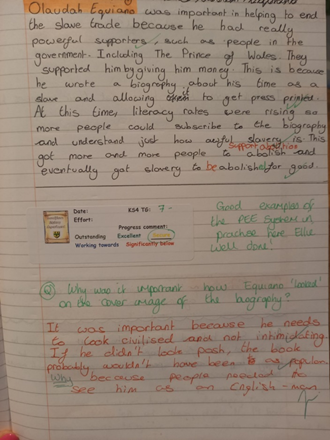 Olaudah Equiano was important in helping to end
the slave trade because he had really
powerful supporters, such as people in the
government. Including The Prince of Wales. They
supported him by giving him money. This is because
he wrote a biography about his time as a
slave and allowing it to get press printed.
At this time, literacy rates were rising so
more people could subscribe to the biography
and understand just how awful slavery is. This
Support abolition
got more and more people to abolish and
eventually got slavery to be abolished for good.
Date:
KS4 TG: 7-
Effort:
Progress comment:
Outstanding Excellent
Working towards Significantly below
Good examples of
the PEE system in
practise here Ellie
Well done!
Q) Why was it important how Equiano 'looked'
on the cover image of the biography?
It was important because he needs
to look civilised and not intimidating.
If he didn't look posh, the book
probably wouldn't have been popular.
Why because people needed to
see him as an English-man